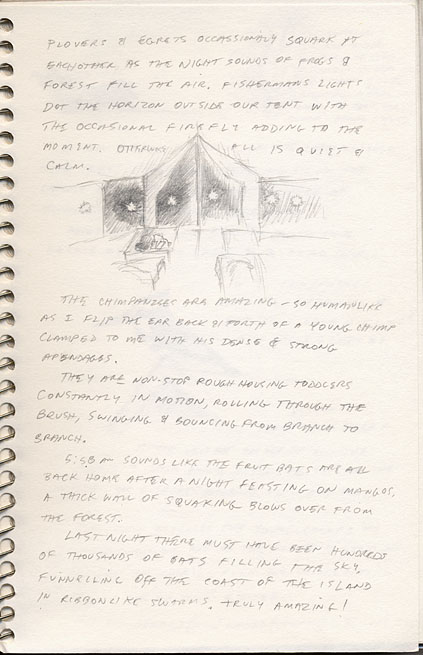 PLOVERS & EGRETS OCCASSIONALY SQUARK AT
EACHOTHER AS THE NIGHT SOUNDS OF FROGS &
FOREST FILL THE AIR. FISHERMANS LIGHTS
DOT THE HORIZON OUTSIDE OUR TENT WITH
THE OCCASIONAL FIREFLY ADDING TO THE
MOMENT. OTHERWISE ALL IS QUIET &
CALM.
THE CHIMPANZEES ARE AMAZING - SO HUMANLIKE
AS I FLIP THE EAR BACK & FORTH OF A YOUNG CHIMP
CLAMPED TO ME WITH HIS DENSE & STRONG
APENDAGES.
THEY ARE NON-STOP ROUGH HOUSING TODDLERS
CONSTANTLY IN MOTION, ROLLING THROUGH THE
BRUSH, SWINGING & BOUNCING FROM BRANCH TO
BRANCH.
5:58 AM SOUNDS LIKE THE FRUIT BATS ARE ALL
BACK HOME AFTER A NIGHT FEASTING ON MANGOS,
A THICK WALL OF SQUAKING BLOWS OVER FROM
THE FOREST.
LAST NIGHT THERE MUST HAVE BEEN HUNDREDS
OF THOUSANDS OF BATS FILLING THE SKY,
FUNNELLING OFF THE COAST OF THE ISLAND
IN RIBBONLIKE SWARMS. TRULY AMAZING!